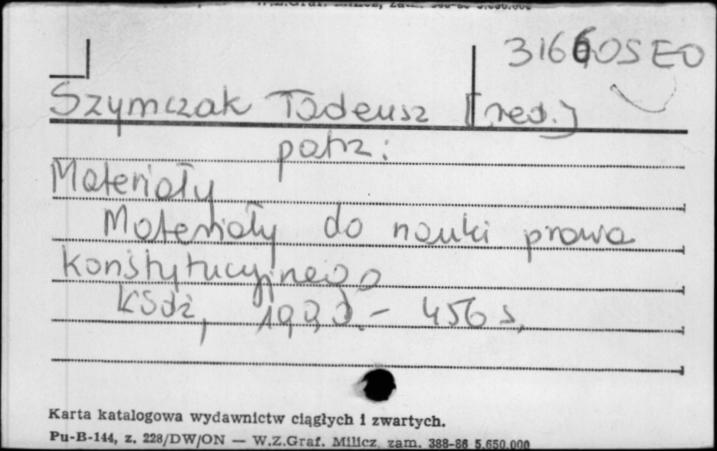 W.Z.Graf. Milicz, zam. 388-86 5.650.000
OSEO
Szymczak Tadeusz [red.]
patrz:
Materiały
Materiały do nauki prawa
konstytucyjnego
456 s.
Karta katalogowa wydawnictw ciągłych i zwartych.
Pu-B-144, z. 228/DW/ON — W.Z.Graf. Milicz, zam. 388-86 5.650.000